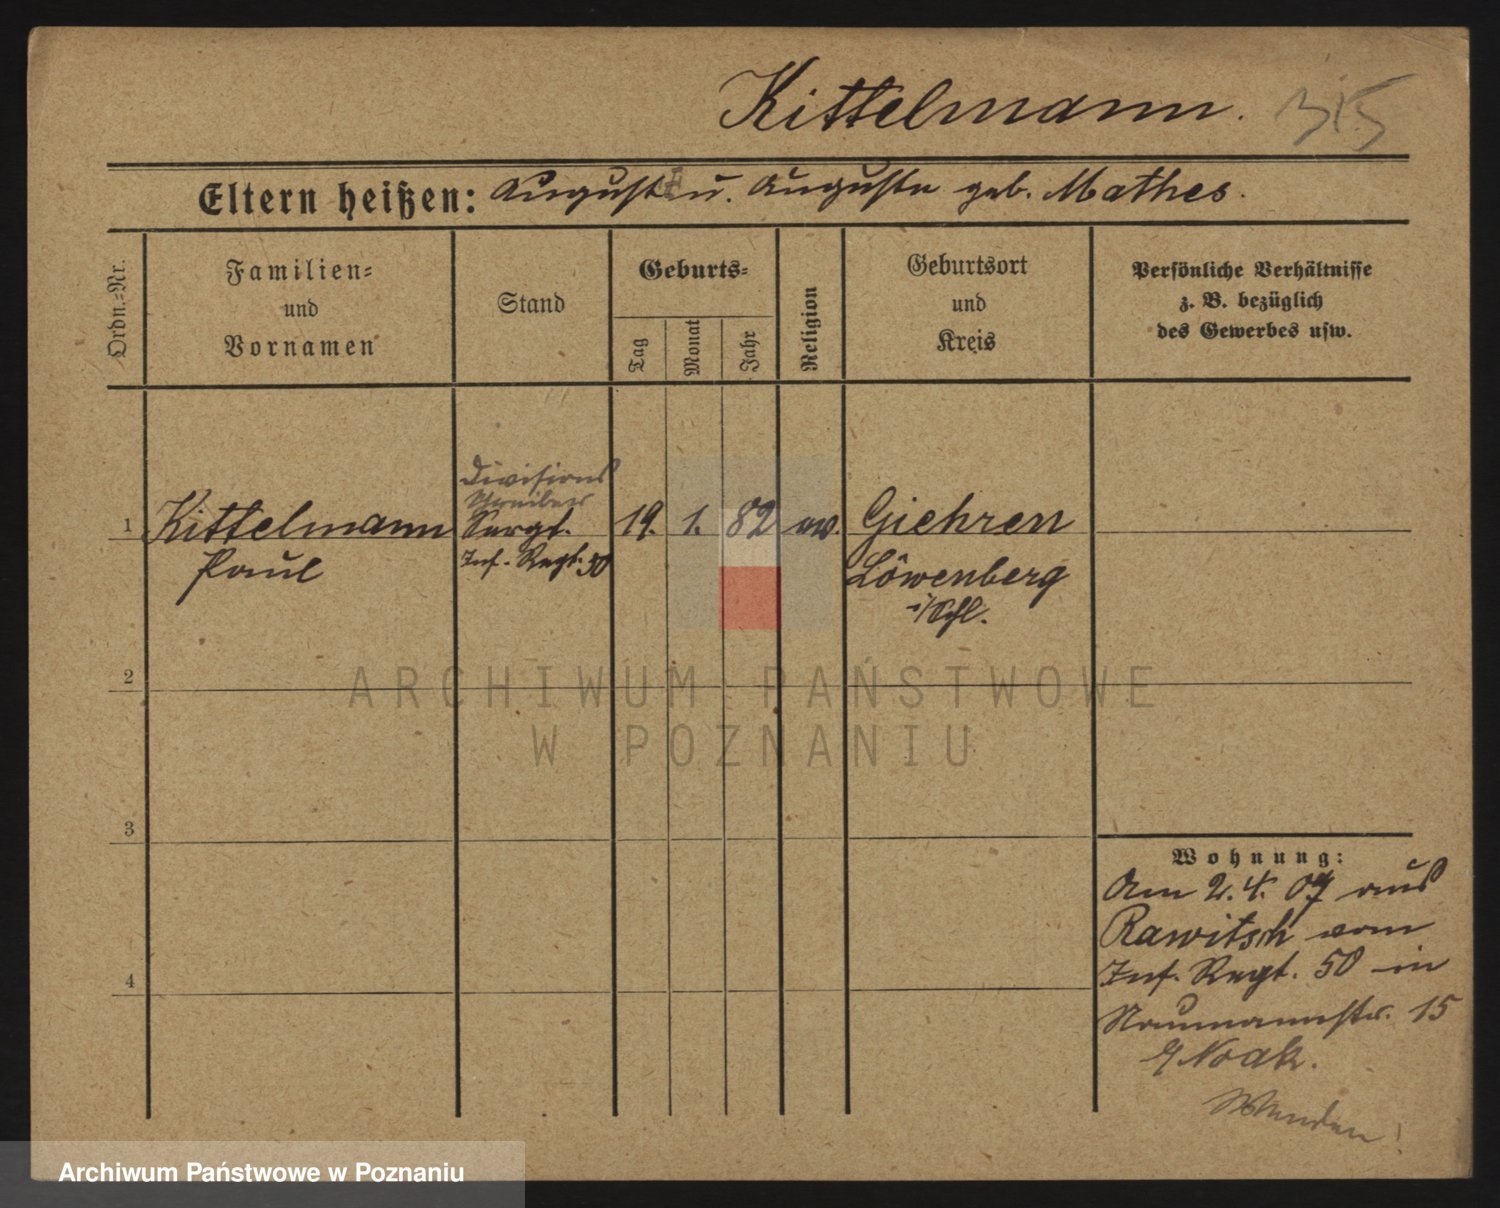 Kittelmann. 315
Eltern heißen: August † u. Auguste geb. Mathes.
Ordn.-Nr.
Familien-
und
Vornamen
Stand
Geburts-
Tag
Monat
Jahr
Religion
Geburtsort
und
Kreis
Persönliche Verhältnisse
z. B. bezüglich
des Gewerbes usw.
Divisions
Schreiber
1 Kittelmann Sergt. 19. 1. 82 ev. Giehren
Paul Inf. Regt. 50 Löwenberg
i/Schl.
2
3
4
Wohnung:
Am 2. 4. 07 aus
Rawitsch vom
Inf. Regt. 50 in
Naumannstr. 15
Noak.
Wenden!
ARCHIWUM PAŃSTWOWE
W POZNANIU
Archiwum Państwowe w Poznaniu